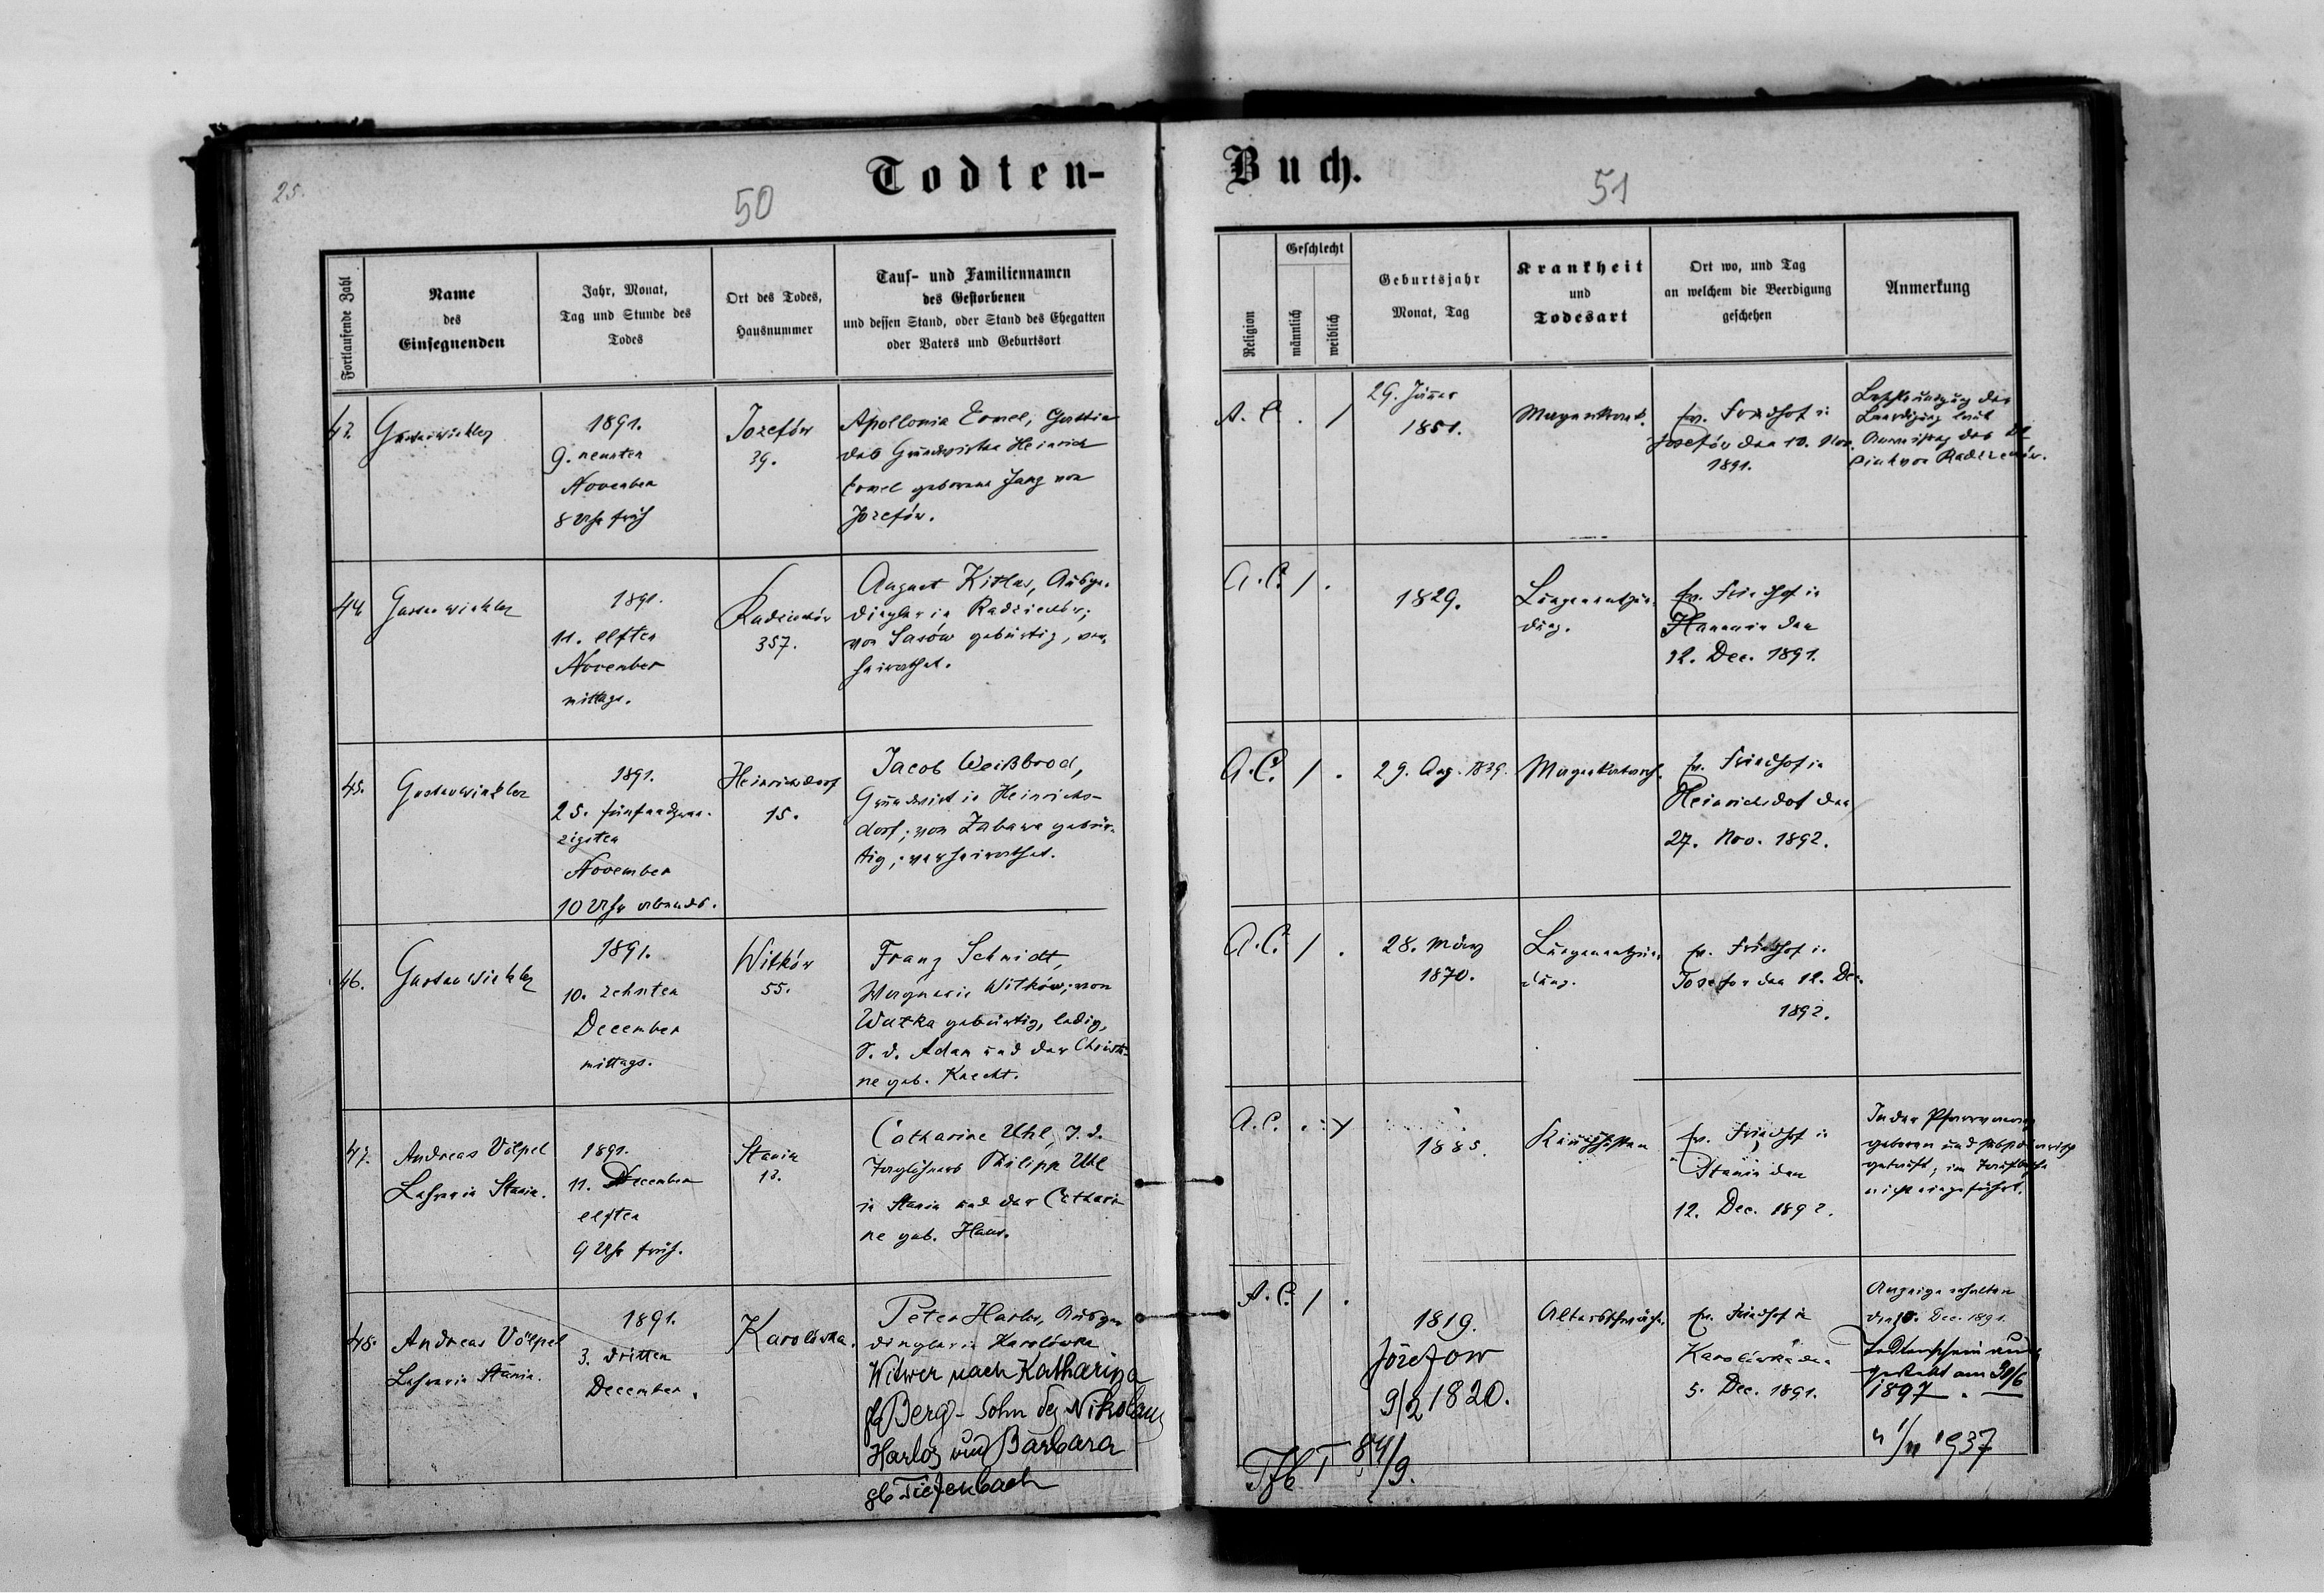 25.
50
Todten-
Buch.
51
Fortlaufende Zahl
Name
des
Einsegnenden
Jahr, Monat,
Tag und Stunde des
Todes
Ort des Todes,
Hausnummer
Tauf- und Familiennamen
des Gestorbenen
und dessen Stand, oder Stand des Ehegatten
oder Vaters und Geburtsort
Religion
Geschlecht
männlich
weiblich
Geburtsjahr
Monat, Tag
Krankheit
und
Todesart
Ort wo, und Tag
an welchem die Beerdigung
geschehen
Anmerkung
43.
1891.
9. neunten
November
8 Uhr früh
Jozefów
39.
Apollonia Ermel, Gattin
des Grundwirthen Heinrich
Ermel geborene Jung von
Jozefów.
A. C. . /
29. Jänner
1851.
ev. Friedhof in
Josefów den 10. Nov.
1891.
44
Gustav Winkler
1891.
11. elften
November
mittags.
Radziechów
357.
August Kitlas, Ausge-
dingler in Radziechów;
von Sasów gebürtig, ver-
heirathet.
A. C. / .
1829.
Lungenentzün-
dung.
ev. Friedhof in
Hanunin den
12. Dec. 1891.
45.
Gustav Winkler
1891.
25. fünfundzwan-
zigsten
November
10 Uhr abends.
Heinrichsdorf
15.
Jacob Weißbrod,
Grundwirt in Heinrichs-
dorf; von Zabawa gebür-
tig; verheirathet.
A. C. / .
29. Aug. 1839.
ev. Friedhof in
Heinrichsdof den
27. Nov. 1892.
46.
Gustav Winkler
1891.
10. zehnten
December
mittags.
Witków
55.
Franz Schmidt,
Wagner in Witków; von
gebürtig, ledig,
S. d. Adam und der Christi-
ne geb. Knecht.
A. C. / .
28. März
1870.
Lungenentzün-
dung.
ev. Friedhof in
Josefow den 12. Dec.
1892.
47.
Andreas Völpel
Lehrer in Stanin.
1891.
11. December
elften
9 Uhr früh.
Stanin
13.
Catharine Uhl, T. d.
Taglöhners Philipp Uhl
in Stanin und der Cathari
ne geb. Haas.
A. C.
1885.
Keuchhusten
ev. Friedhof in
Stanin den
12. Dec. 1892.
In der Pfarre
geboren und
getauft, im Taufbuche
nicht eingeführt.
48.
Andreas Völpel
Lehrer in Stanin.
1891.
3. dritten
December.
Karolówka.
Peter Harlos, Ausge-
dingler in Karolówka
Witwer nach Katharina
gb Berg - Sohn des Nikolaus
Harlos und Barbara
gb Tiefenbach
A. C. / .
1819.
Józefow
9/2 1820.
Tfb I 84/9.
Altersschwäche.
ev. Friedhof in
Karolówka den
5. Dec. 1891.
Anzeige erhalten
den 10. Dec. 1891.
Todtenschein aus-
gestellt am 30/6
1897.
" 1/11 1937